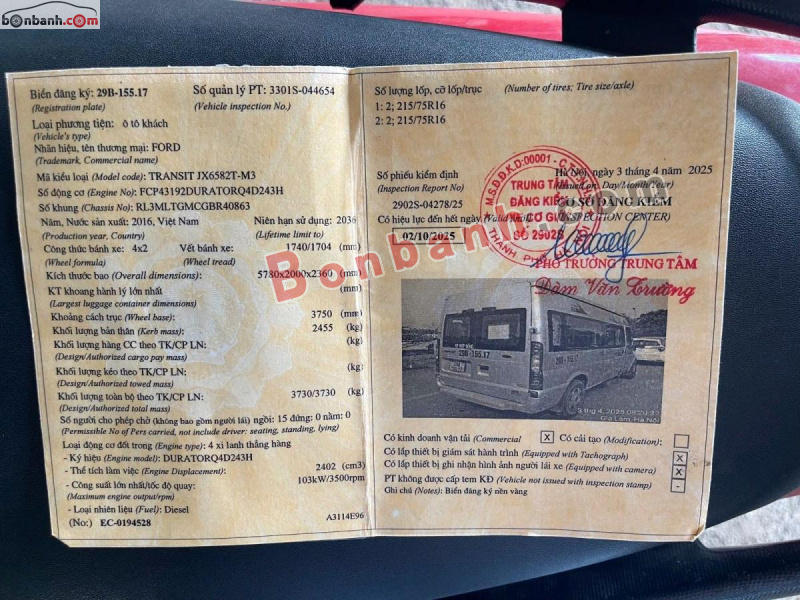 bonbanh.com
Biển đăng ký: 29B-155.17 Số quản lý PT: 3301S-044654
(Registration plate) (Vehicle inspection No.)
Loại phương tiện: ô tô khách
(Vehicle's type)
Nhãn hiệu, tên thương mại: FORD
(Trademark, Commercial name)
Mã kiểu loại (Model code): TRANSIT JX6582T-M3
Số động cơ (Engine No): FCP43192DURATORQ4D243H
Số khung (Chassis No): RL3MLTGMCGBR40863
Năm, Nước sản xuất: 2016, Việt Nam Niên hạn sử dụng: 2036
(Production year, Country) (Lifetime limit to)
Công thức bánh xe: 4x2 Vết bánh xe: 1740/1704 (mm)
(Wheel formula) (Wheel tread)
Kích thước bao (Overall dimensions): 5780x2000x2360 (mm)
KT khoang hành lý lớn nhất (mm)
(Largest luggage container dimensions)
Khoảng cách trục (Wheel base): 3750 (mm)
Khối lượng bản thân (Kerb mass): 2455 (kg)
Khối lượng hàng CC theo TK/CP LN: (kg)
(Design/Authorized cargo pay mass)
Khối lượng kéo theo TK/CP LN: (kg)
(Design/Authorized towed mass)
Khối lượng toàn bộ theo TK/CP LN: 3730/3730 (kg)
(Design/Authorized total mass)
Số người cho phép chở (không bao gồm người lái) ngồi: 15 đứng: 0 nằm: 0
(Permissible No of Pers carried, not include driver: seating, standing, lying)
Loại động cơ đốt trong (Engine type) 4 xi lanh thẳng hàng
- Ký hiệu (Engine model): DURATORQ4D243H
- Thể tích làm việc (Engine Displacement): 2402 (cm3)
- Công suất lớn nhất/tốc độ quay: 103kW/3500rpm
(Maximum engine output/rpm)
- Loại nhiên liệu (Fuel): Diesel
(No:) EC-0194528 A3114E96
Số lượng lốp, cỡ lốp/trục (Number of tires; Tire size/axle)
1: 2; 215/75R16
2: 2; 215/75R16
Số phiếu kiểm định Hà Nội, ngày 3 tháng 4 năm 2025
(Inspection Report No) (Issued on: Day/Month/Year)
2902S-04278/25 CƠ SỞ ĐĂNG KIỂM
Có hiệu lực đến hết ngày (Valid until) (INSPECTION CENTER)
02/10/2025
M.S.D.Đ.K.D:00001
TRUNG TÂM
ĐĂNG KIỂM
XE CƠ GIỚI
SỐ 2902S
THÀNH PHỐ
PHÓ TRƯỞNG TRUNG TÂM
Đàm Văn Trường
Bonbanh.com
29B-155.17
29B-155.17
3 thg 4, 2025 08:20:22
Gia Lâm, Hà Nội
Có kinh doanh vận tải (Commercial) X Có cải tạo (Modification):
Có lắp thiết bị giám sát hành trình (Equipped with Tachograph) X
Có lắp thiết bị ghi nhận hình ảnh người lái xe (Equipped with camera) X
PT không được cấp tem KĐ (Vehicle not issued with inspection stamp) -
Ghi chú (Notes): Biển đăng ký nền vàng